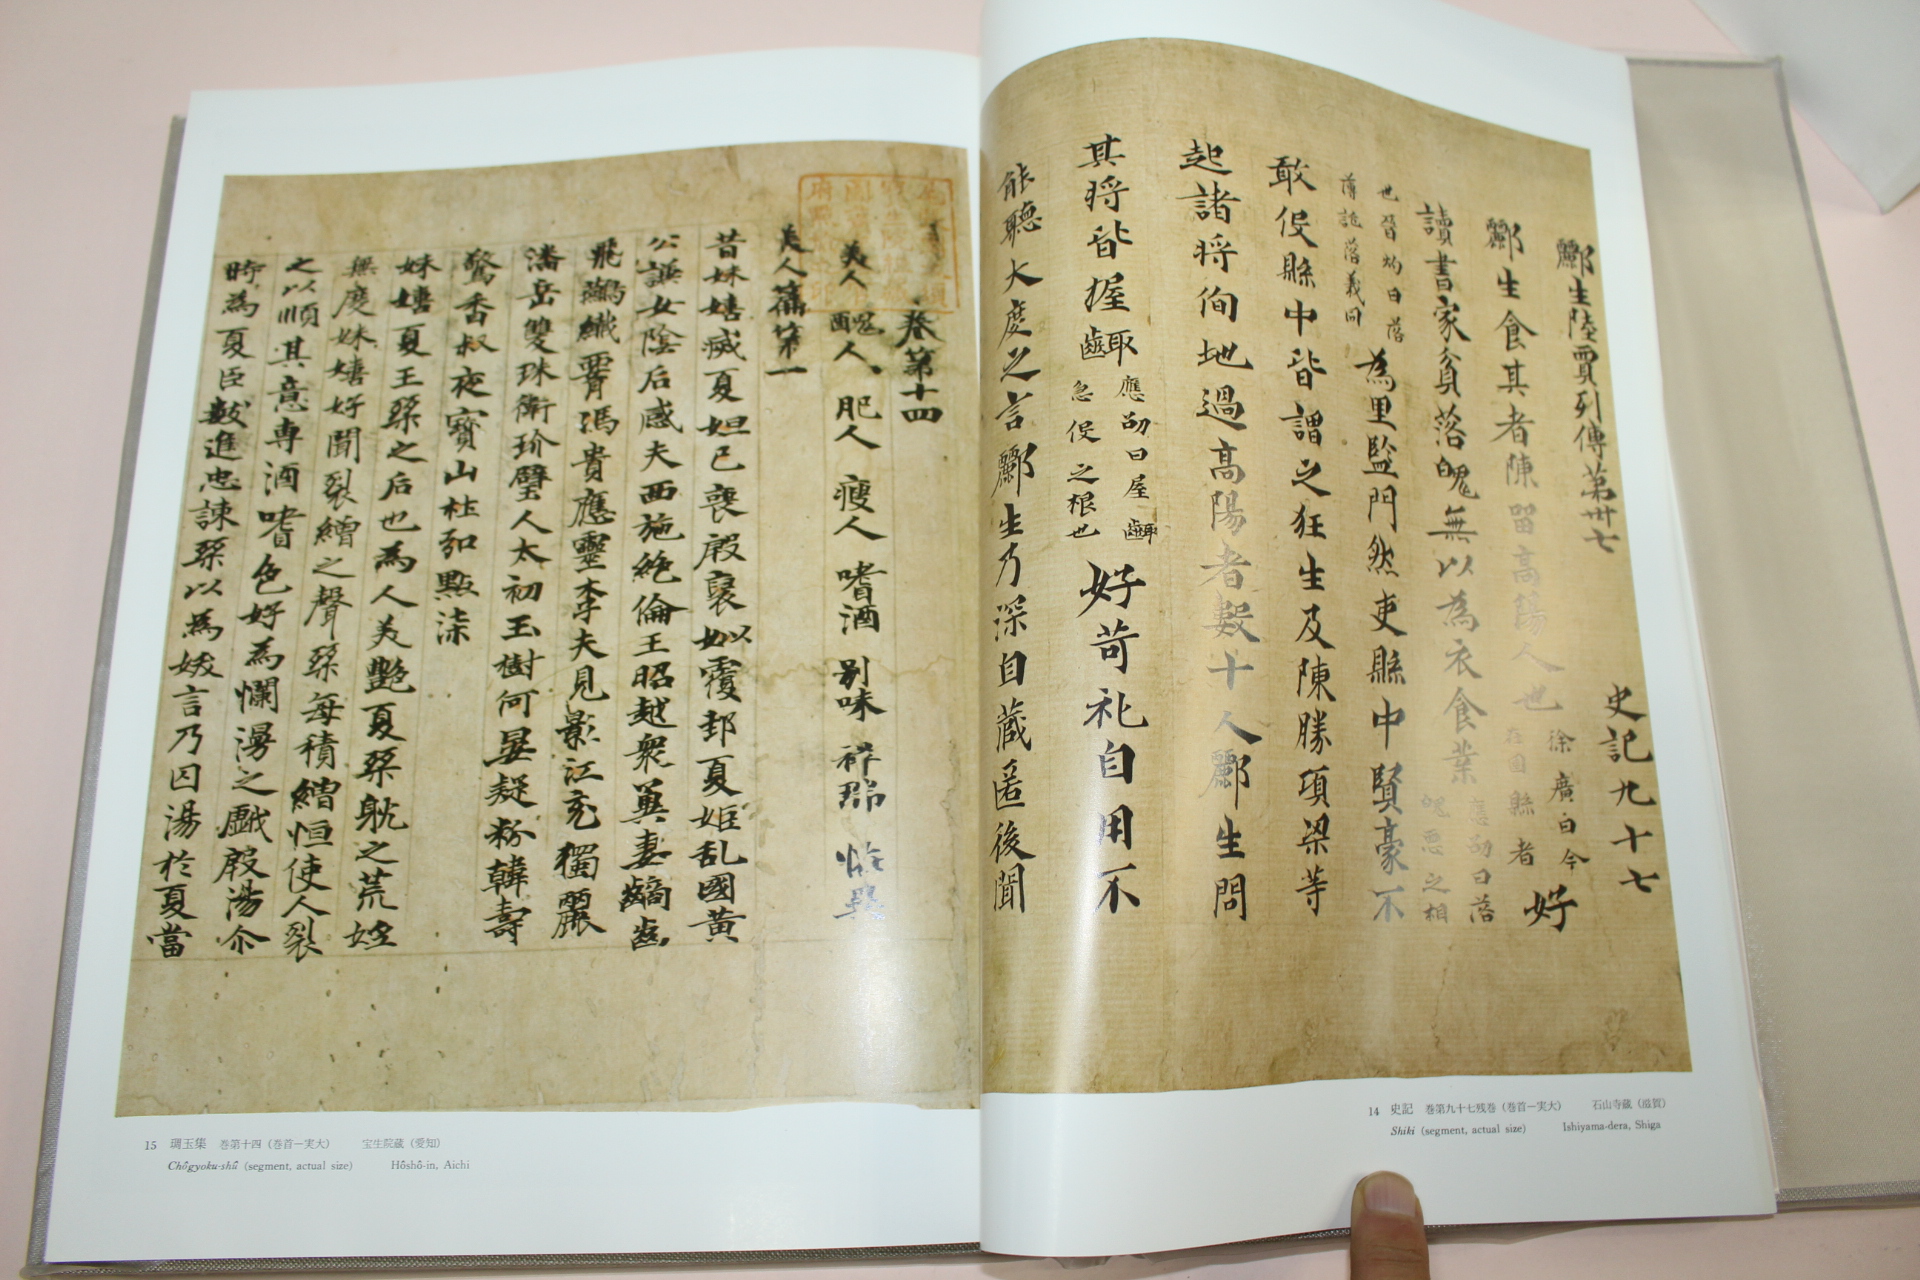 酈生陸賈列傳第卅七
史記九十七
酈生食其者陳留高陽人也
徐廣曰今
在圉縣者
好
讀書家貧落魄無以為衣食業
應劭曰落
魄悪之相
也晉灼曰落
薄託落義同
為里監門然吏縣中賢豪不
敢役縣中皆謂之狂生及陳勝項梁等
起諸将侚地過髙陽者數十人酈生問
其将皆握齱
應劭曰屋齱
急役之根也
好苛礼自用不
能聽大度之言酈生乃深自藏匿後聞
14 史記 巻第九十七残巻（巻首―実大） 石山寺蔵（滋賀）
Shiki (segment, actual size) Ishiyama-dera, Shiga
卷第十四
美人 醜人 肥人 瘦人 嗜酒 别味 祥瑞 恠異
美人篇第一
昔妹嬉滅夏妲己喪殷襃姒覆邽夏姬乱國黃
公誤女陰后感夫西施絶倫王昭越衆巽妻齲齒
飛鷰纎霄馮貴應靈李夫見影江充獨麗
潘岳雙珠衛玠璧人太初玉樹何晏疑粉韓壽
驚香叔夜寳山杜弘點漆
妹嬉夏王桀之后也為人美艶夏桀躭之荒婬
無度妹嬉好聞裂繒之聲桀每積繒恒使人裂
之以順其意専酒嗜色好為爛漫之戯殷湯尒
時為夏臣數進忠諫桀以為妖言乃囚湯於夏當
15 琱玉集 巻第十四（巻首―実大） 宝生院蔵（愛知）
Chôgyoku-shû (segment, actual size) Hôshô-in, Aichi